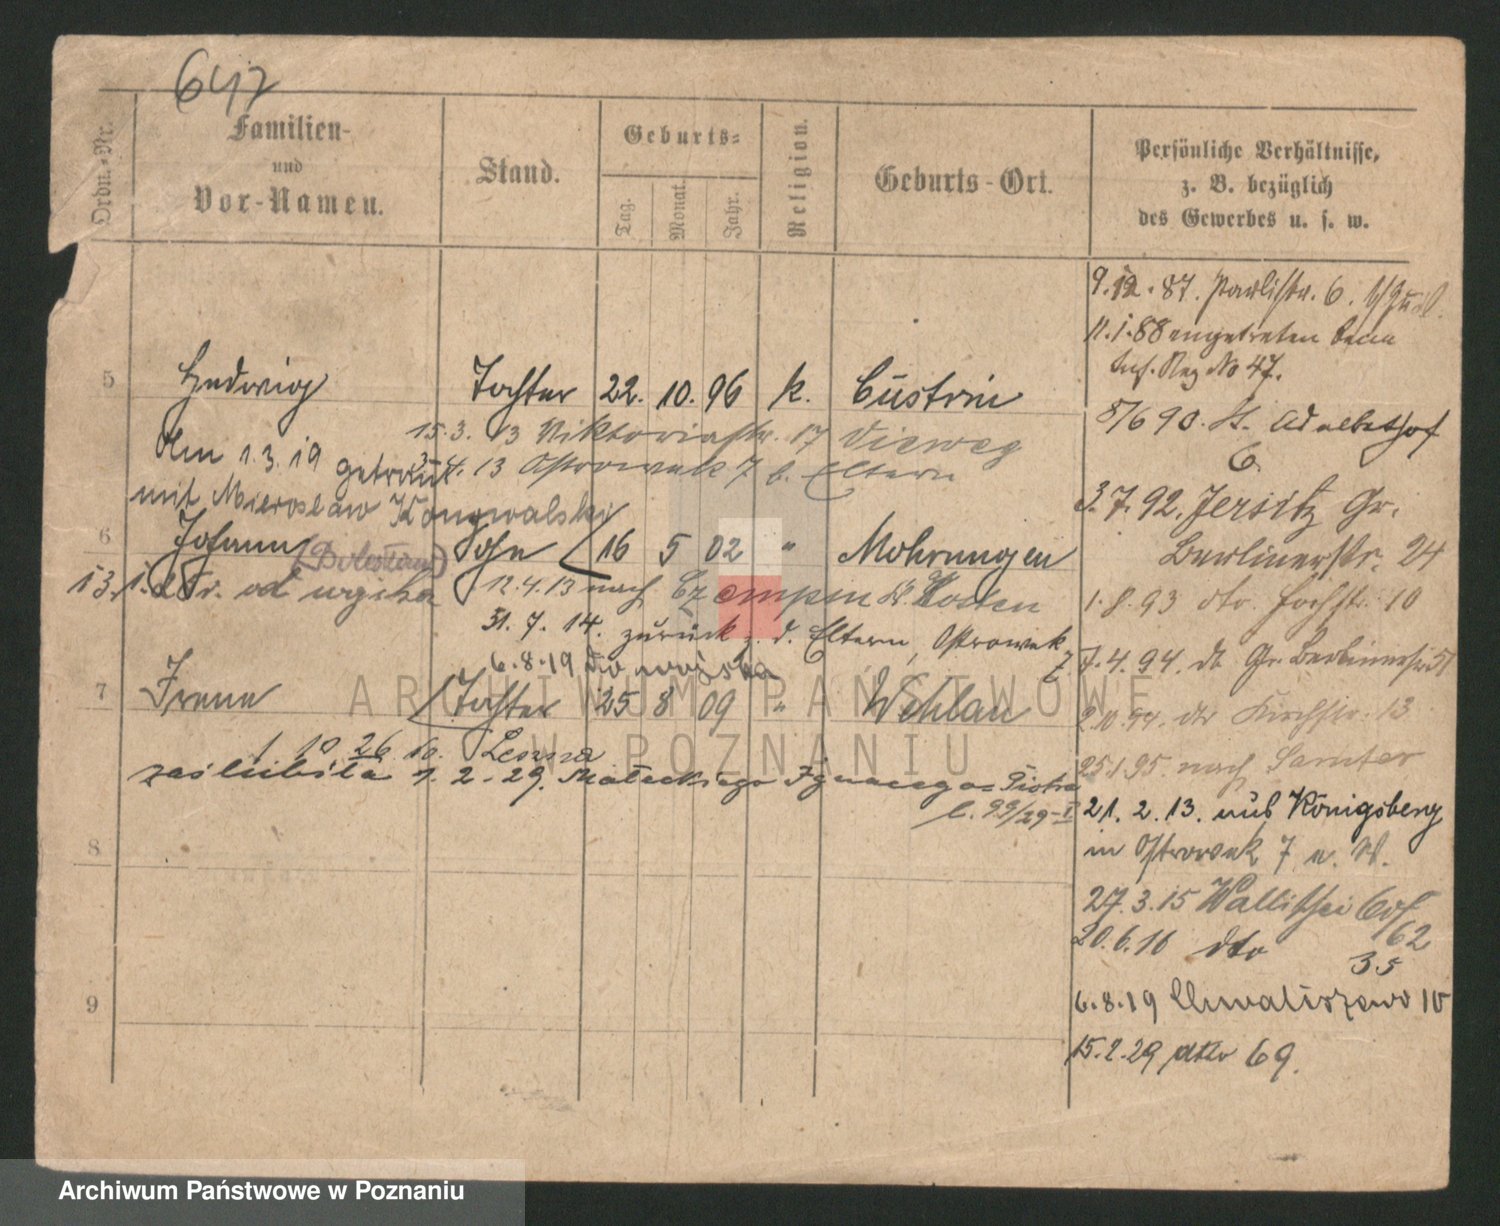 647
Ordn.-Nr.
Familien-
und
Vor-Namen.
Stand.
Geburts-
Tag.
Monat.
Jahr.
Religion.
Geburts-Ort.
Persönliche Verhältnisse,
z. B. bezüglich
des Gewerbes u. s. w.
9.12.87. Paulistr. 6.
11.1.88 eingetreten beim
Inf. Reg No 47.
5 Hedwig Tochter 22. 10. 96 k. Cüstrin
15.3. 13 Viktoriastr. 17 Vieweg
Am 1.3.19 getraut
3.4. 13 Ostrowek 7 b. Eltern
mit Mieroslaw
8/6 90. St. Adalberthof
6
3.7.92. Jersitz Gr.
Berlinerstr. 24
6 Johann (Bolesław) Sohn 16 5 02 " Mohrungen
12.4.13 nach Czempin Kr. Kosten
1.8.93 dto. Hochstr. 10
31. 7. 14. zurück z. d. Eltern, Ostrowek 7
6.8.19 do wojska
7.4.94. do Gr. Berlinerstr 51
7 Irena Tochter 25 8 09 " Wehlau
2.10.94. dto Kirchstr. 13
1 10 26 do Leszna
25.1.95 nach Samter
zaślubiła 1.2.29. Małeckiego Ignacego Piotra
l. 99/29-I
21. 2. 13. aus Königsberg
in Ostrowek 7 a. W.
8
27.3.15 Wallischei 62
20.6.16 dto 35
9
6.8.19 Chwaliszewo 10
15.2.29 dtto 69.
ARCHIWUM PAŃSTWOWE
W POZNANIU
Archiwum Państwowe w Poznaniu